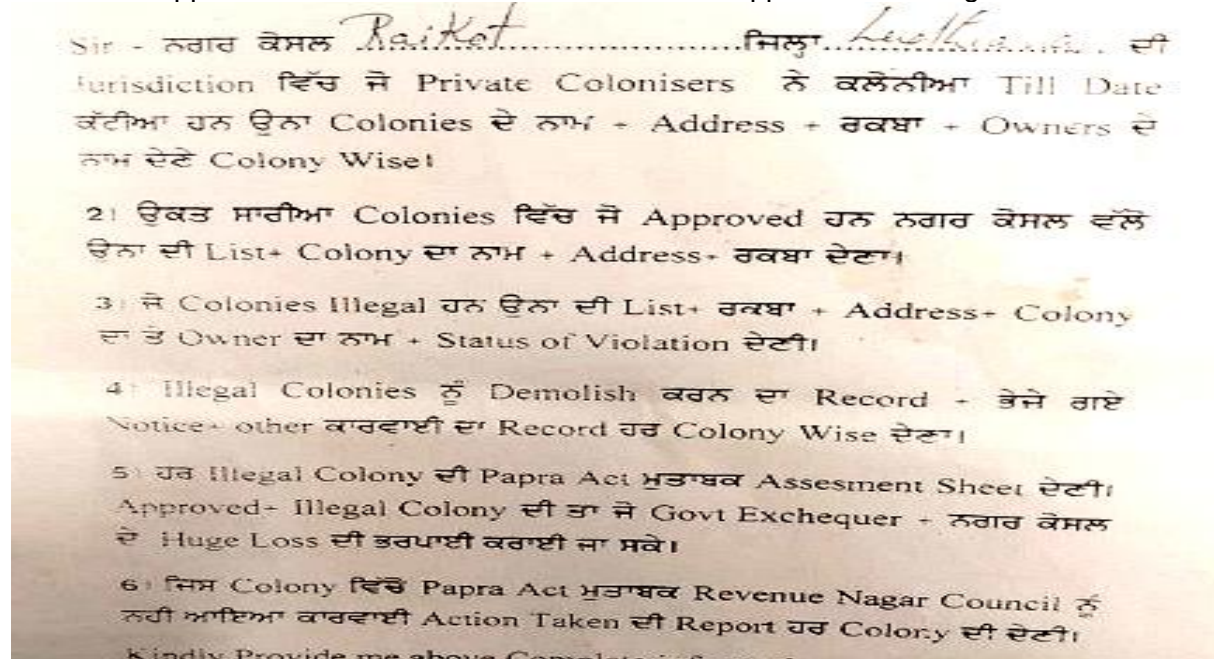 Sir - ਨਗਰ ਕੋਸਲ Raikot ਜਿਲ੍ਹਾ Ludhiana ਦੀ
Jurisdiction ਵਿੱਚ ਜੋ Private Colonisers ਨੇ ਕਲੋਨੀਆ Till Date
ਕੱਟੀਆ ਹਨ ਉਨਾ Colonies ਦੇ ਨਾਮ + Address + ਰਕਬਾ + Owners ਦੇ
ਨਾਮ ਦੇਣੇ Colony Wise।
2। ਉਕਤ ਸਾਰੀਆ Colonies ਵਿੱਚ ਜੋ Approved ਹਨ ਨਗਰ ਕੋਸਲ ਵੱਲੋ
ਉਨਾ ਦੀ List+ Colony ਦਾ ਨਾਮ + Address+ ਰਕਬਾ ਦੇਣਾ।
3। ਜੋ Colonies Illegal ਹਨ ਉਨਾ ਦੀ List+ ਰਕਬਾ + Address+ Colony
ਦਾ ਤੇ Owner ਦਾ ਨਾਮ + Status of Violation ਦੇਣੀ।
4। Illegal Colonies ਨੂੰ Demolish ਕਰਨ ਦਾ Record - ਭੇਜੇ ਗਏ
Notice+ other ਕਾਰਵਾਈ ਦਾ Record ਹਰ Colony Wise ਦੇਣਾ।
5। ਹਰ Illegal Colony ਦੀ Papra Act ਮੁਤਾਬਕ Assesment Sheet ਦੇਣੀ।
Approved+ Illegal Colony ਦੀ ਤਾ ਜੋ Govt Exchequer + ਨਗਰ ਕੋਸਲ
ਦੇ Huge Loss ਦੀ ਭਰਪਾਈ ਕਰਾਈ ਜਾ ਸਕੇ।
6। ਜਿਸ Colony ਵਿੱਚੋ Papra Act ਮੁਤਾਬਕ Revenue Nagar Council ਨੂੰ
ਨਹੀ ਆਇਆ ਕਾਰਵਾਈ Action Taken ਦੀ Report ਹਰ Colony ਦੀ ਦੇਣੀ।
Kindly Provide me above Complete